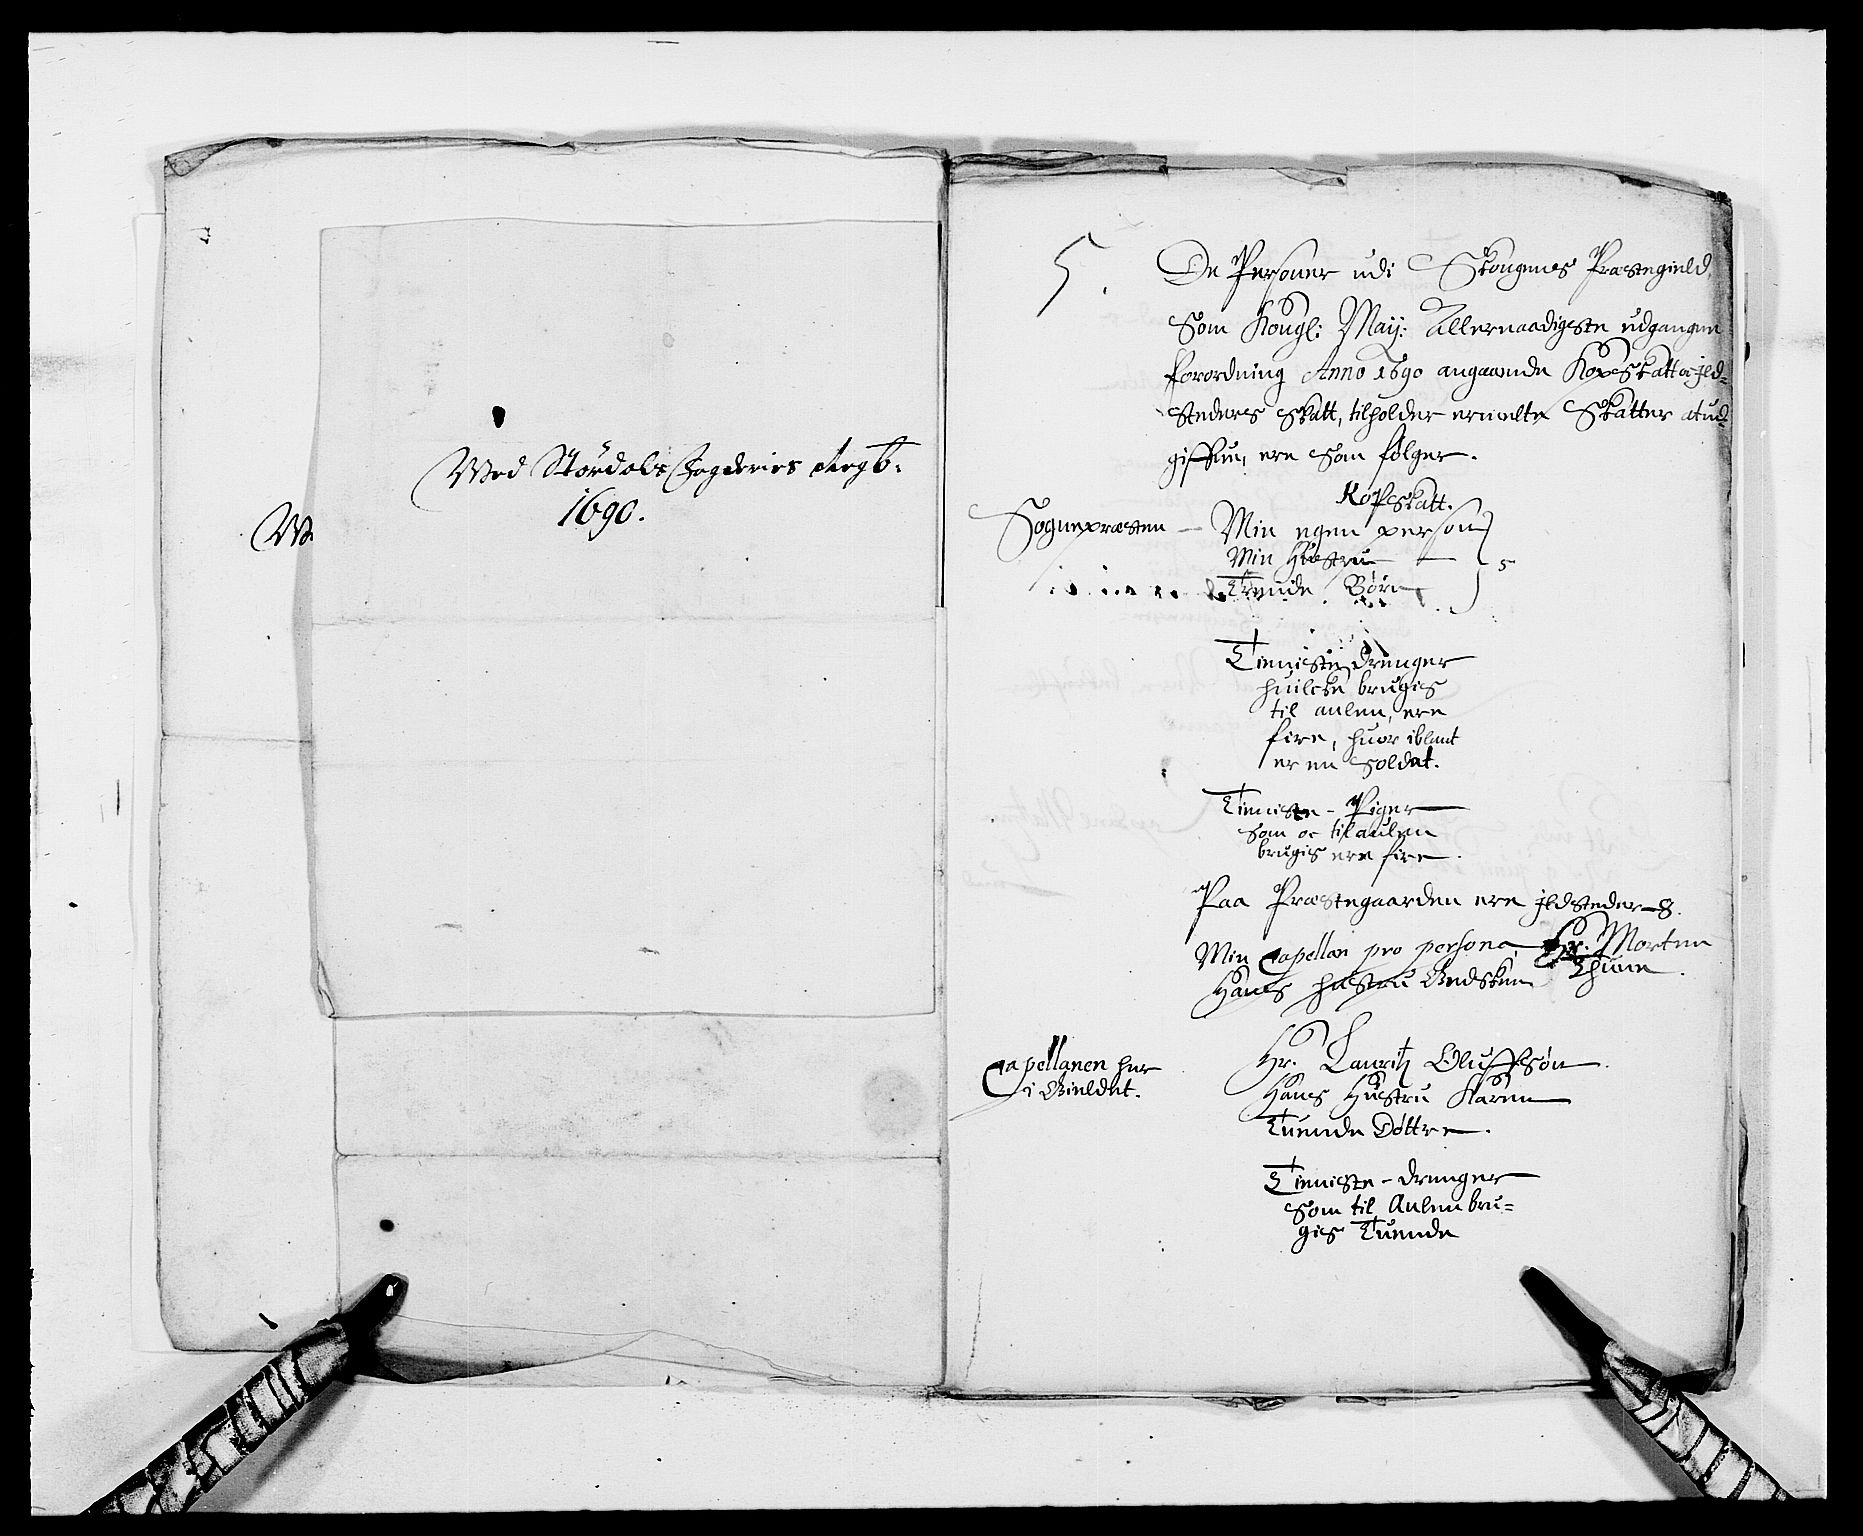 Wed Størdals Fogderies Regb:
1690.
We
5.
De Personer udi Skougnes Præstegield,
Som Kongl: Maij: Allernaadigste udgangne
forordning Anno 1690 angaaende Kopskatt oc jld-
steders Skatt, tilholder ermelte Skatter at ud-
giffue, ere som følger.
Kopskatt.
Sognepræsten — Min egen person
Min Hustru — 5
Trende Børn
Tieniste drenger
huilcke brugis
til aulen, ere
fire, huor iblant
er en Soldat.
Tieniste - Piger
som oc til aulen
brugis ere fire.
Paa Præstegaarden ere jldsteder - 8.
Min Capellan pro persona, Hr. Morten
Thune.
Hans hustru Giedsken
Capellanen her
i Gieldet.
Hr. Lauritz Oluffsøn.
Hans Hustru Karen
Tuende Døttre.
Tieniste - drenger
som til Aulen bru=
gis Tuende